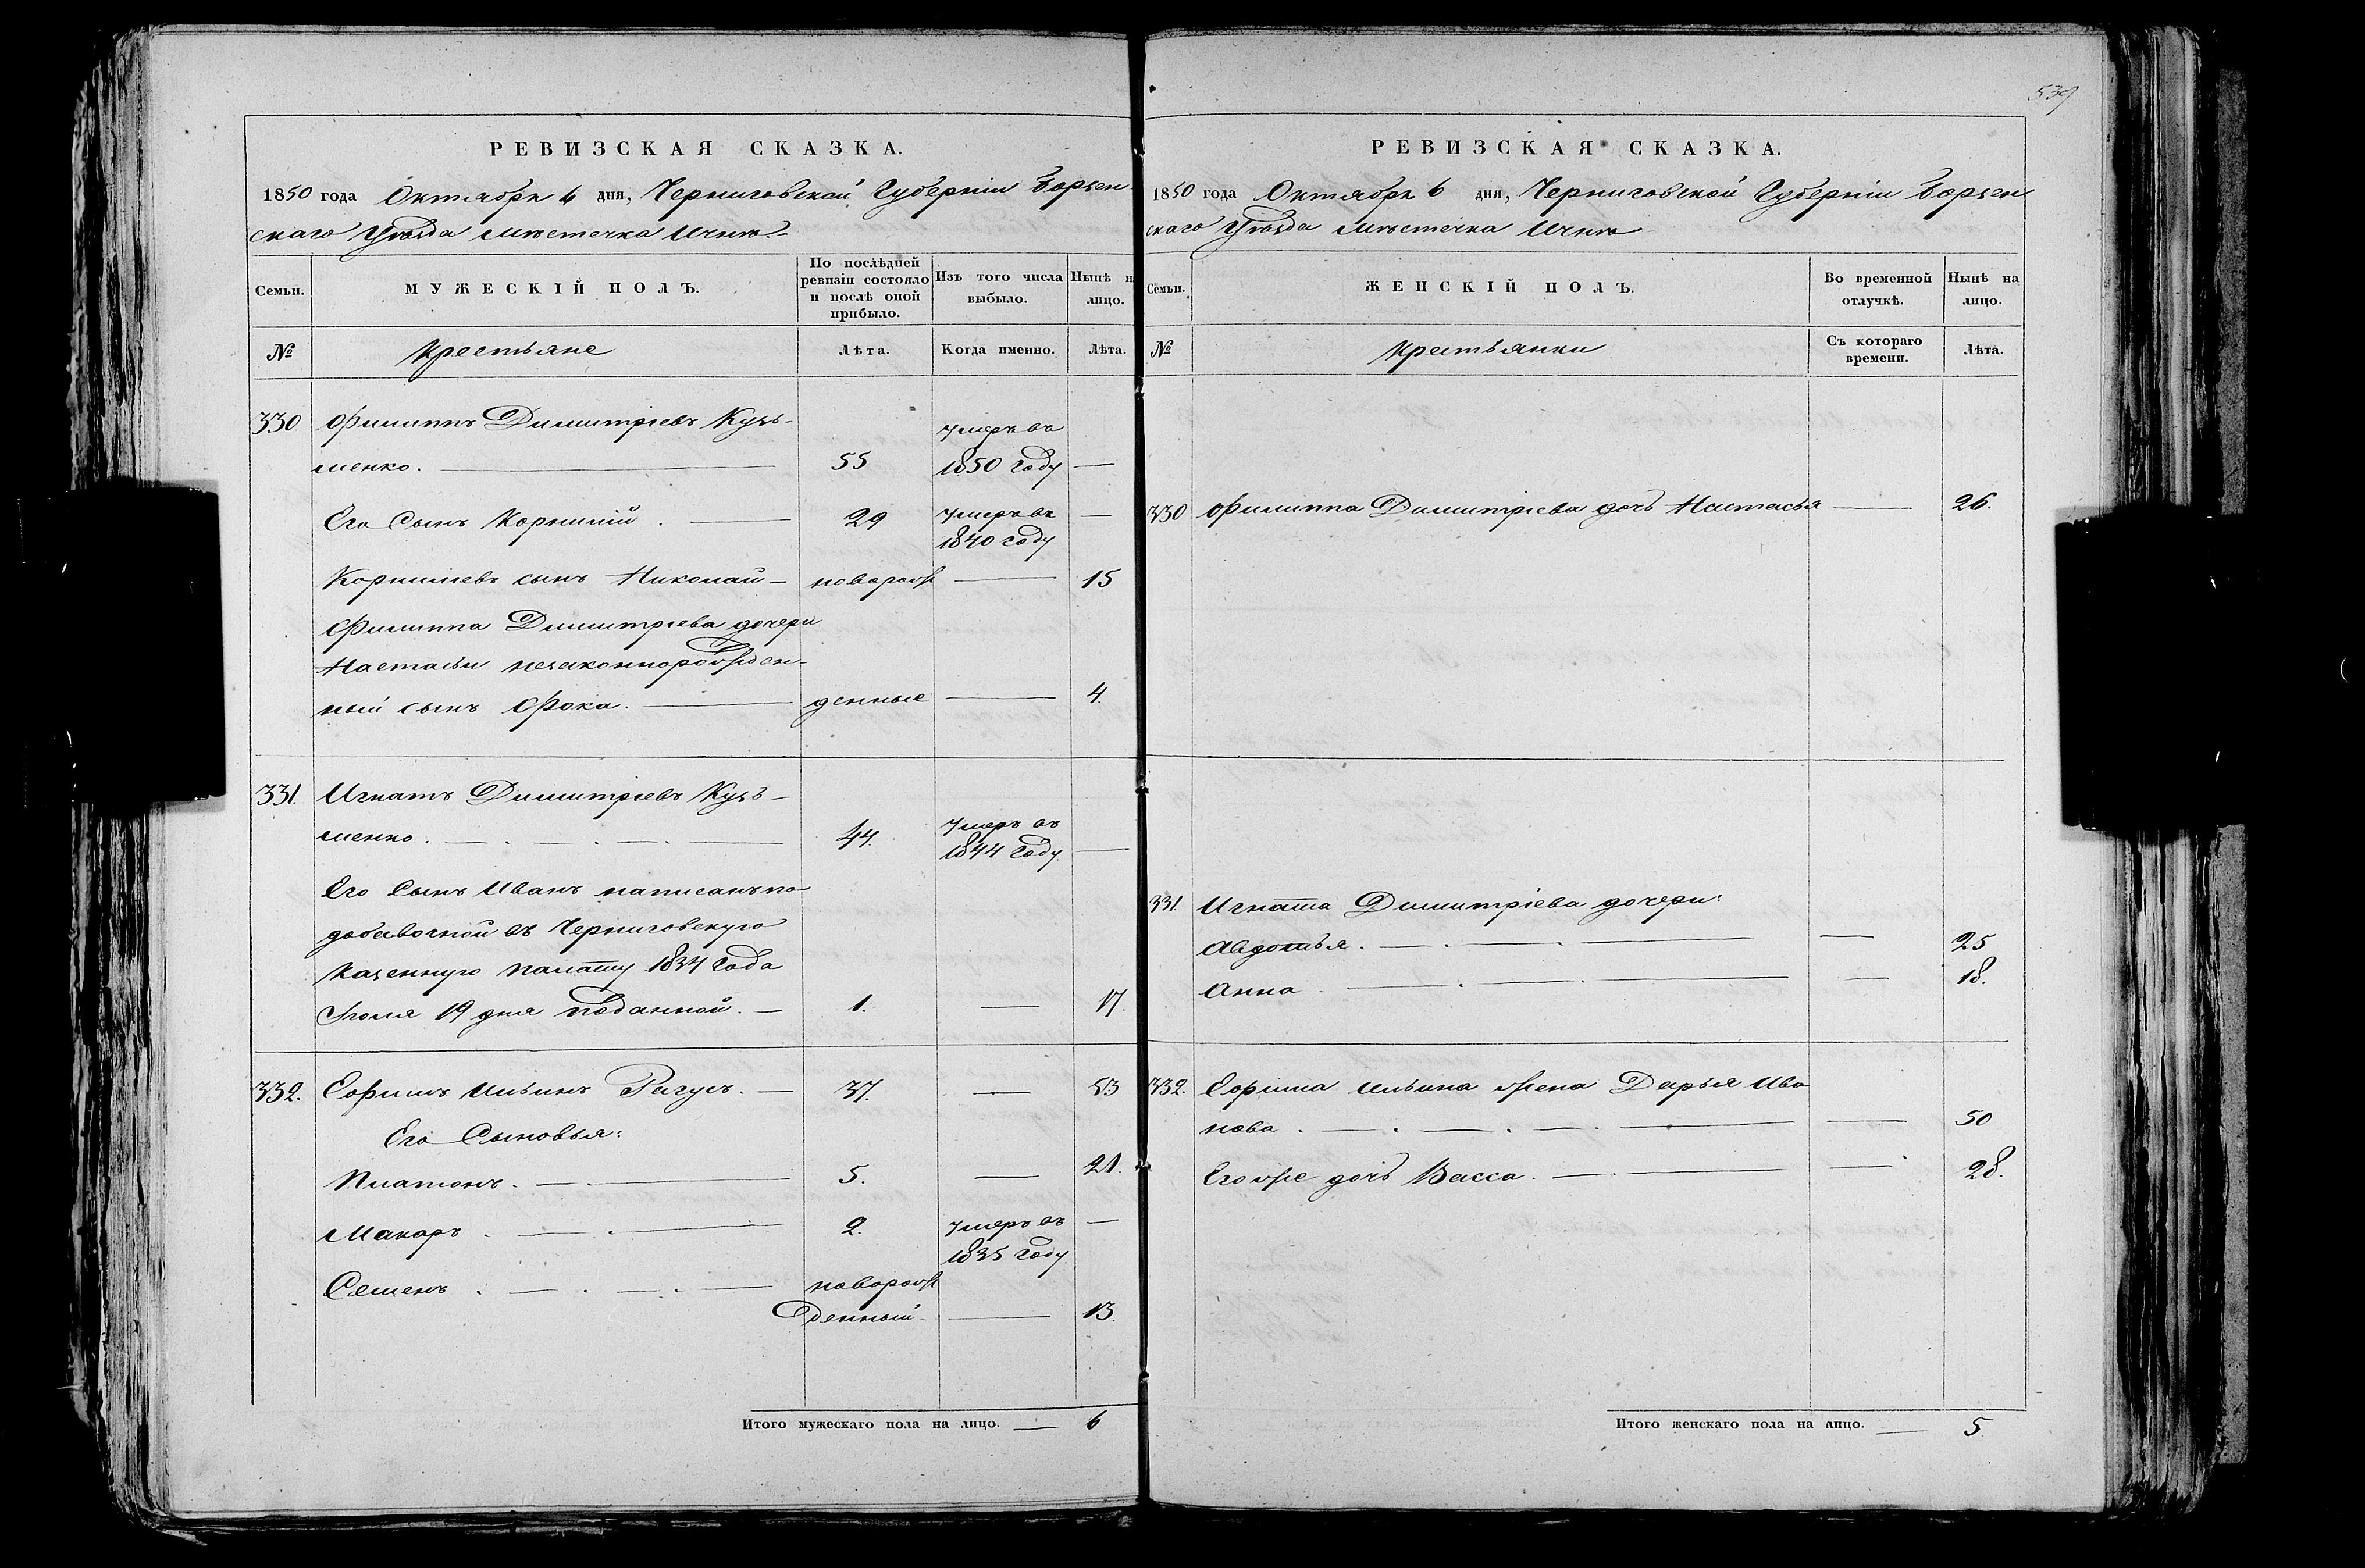 539
РЕВИЗСКАЯ СКАЗКА.
1850 года Октября 6 дня, Черниговской Губерніи Борзен-
скаго Уѣзда мѣстечка Ични
Семьи. МУЖЕСКІЙ ПОЛЪ. По послѣдней ревизіи состояло и послѣ оной прибыло. Изъ того числа выбыло. Нынѣ н лицо.
№ Крестьяне Лѣта. Когда именно. Лѣта.
330 Филиппъ Димитріевъ Кузь- умеръ въ
менко. — 55 1850 году —
Его Сынъ Корнилій . — 29 умеръ въ —
1840 году
Корниліевъ сынъ Николай —новорож — 15
Филиппа Димитріева дочери
Настасьи незаконнорожден-
ный сынъ Фока. — денные — 4.
331. Игнатъ Димитріевъ Кузь-
менко. — 44. умеръ въ
1844 году —
Его Сынъ Иванъ написанъ по
добавочной въ Черниговскую
казенную палату 1834 года
Іюля 19 дня поданной. — 1. — 17.
332. Ефимъ Ильинъ Рагусъ. — 37. — 53
Его Сыновья:
Платонъ. — 5. — 21.
Макаръ . — 2. умеръ въ —
1835 году.
Семенъ . — новорож
денный — 13.
Итого мужескаго пола на лицо. — 6
РЕВИЗСКАЯ СКАЗКА.
1850 года Октября 6 дня, Черниговской Губерніи Борзен
скаго Уѣзда мѣстечка Ични
Семьи. ЖЕНСКІЙ ПОЛЪ. Во временной отлучкѣ. Нынѣ на лицо.
№ Крестьянки Съ котораго времени. Лѣта.
330 Филиппа Димитріева дочь Настасья — 26.
331. Игната Димитріева дочери:
Авдотья. — 25
Анна . — 18.
332. Ефима Ильина жена Дарья Ива
нова . — 50
Его же дочь Васса. — 28.
Итого женскаго пола на лицо. — 5